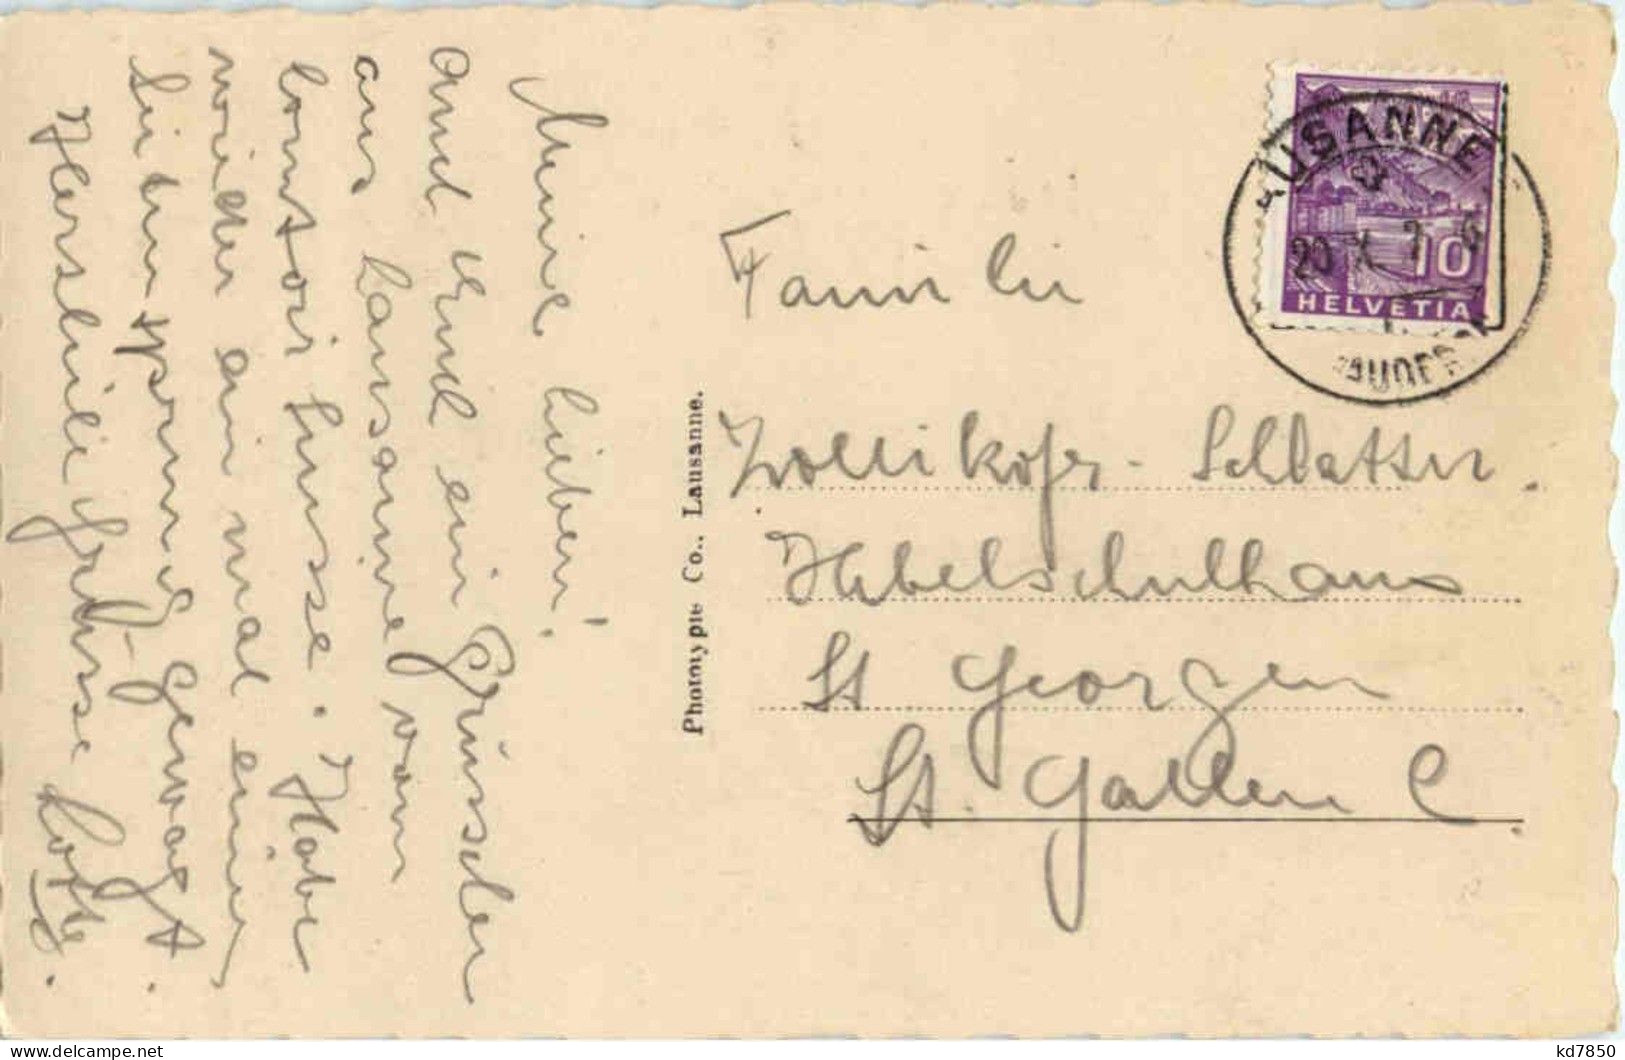 Meine Lieben!
Auch Euch ein Grüsschen
aus Lausanne vom
Comptoir husse. Habe
wieder ein mal einen
Seitensprung gewagt.
Herzliche Grüsse Lotty.
Photoypie Co., Lausanne.
LAUSANNE
20 X
10
HELVETIA
Familie
Zollikofer-Schlatter.
Hebelschulhaus
St Georgen
St. Gallen C
kd7850